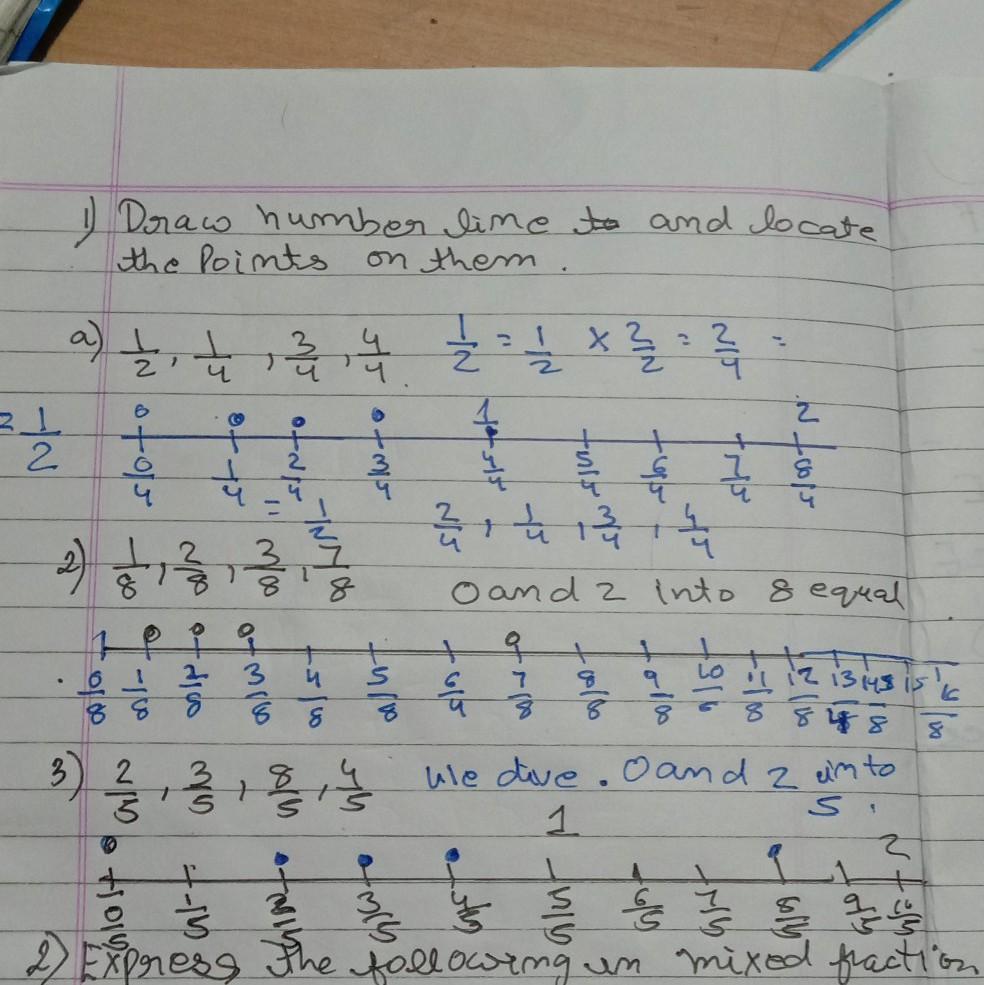 1) Draw number line to and locate
the Points on them .
a) 1/2 , 1/4 , 3/4 , 4/4 . 1/2 = 1/2 × 2/2 = 2/4 =
0 1 2
1/2 0/4 1/4 2/4 3/4 4/4 5/4 6/4 7/4 8/4
= 1/2 2/4 , 1/4 , 3/4 , 4/4
2) 1/8 , 2/8 , 3/8 , 7/8 0 and 2 into 8 equal
0/8 1/8 2/8 3/8 4/8 5/8 6/4 7/8 8/8 9/8 10 11/8 12/8 13 14/8 15 16/8
3) 2/5 , 3/5 , 8/5 , 4/5 We dive . 0 and 2 into
5 .
0 1 2
0/5 1/5 2/5 3/5 4/5 5/5 6/5 7/5 8/5 9/5 10/5
2) Express the following in mixed fraction